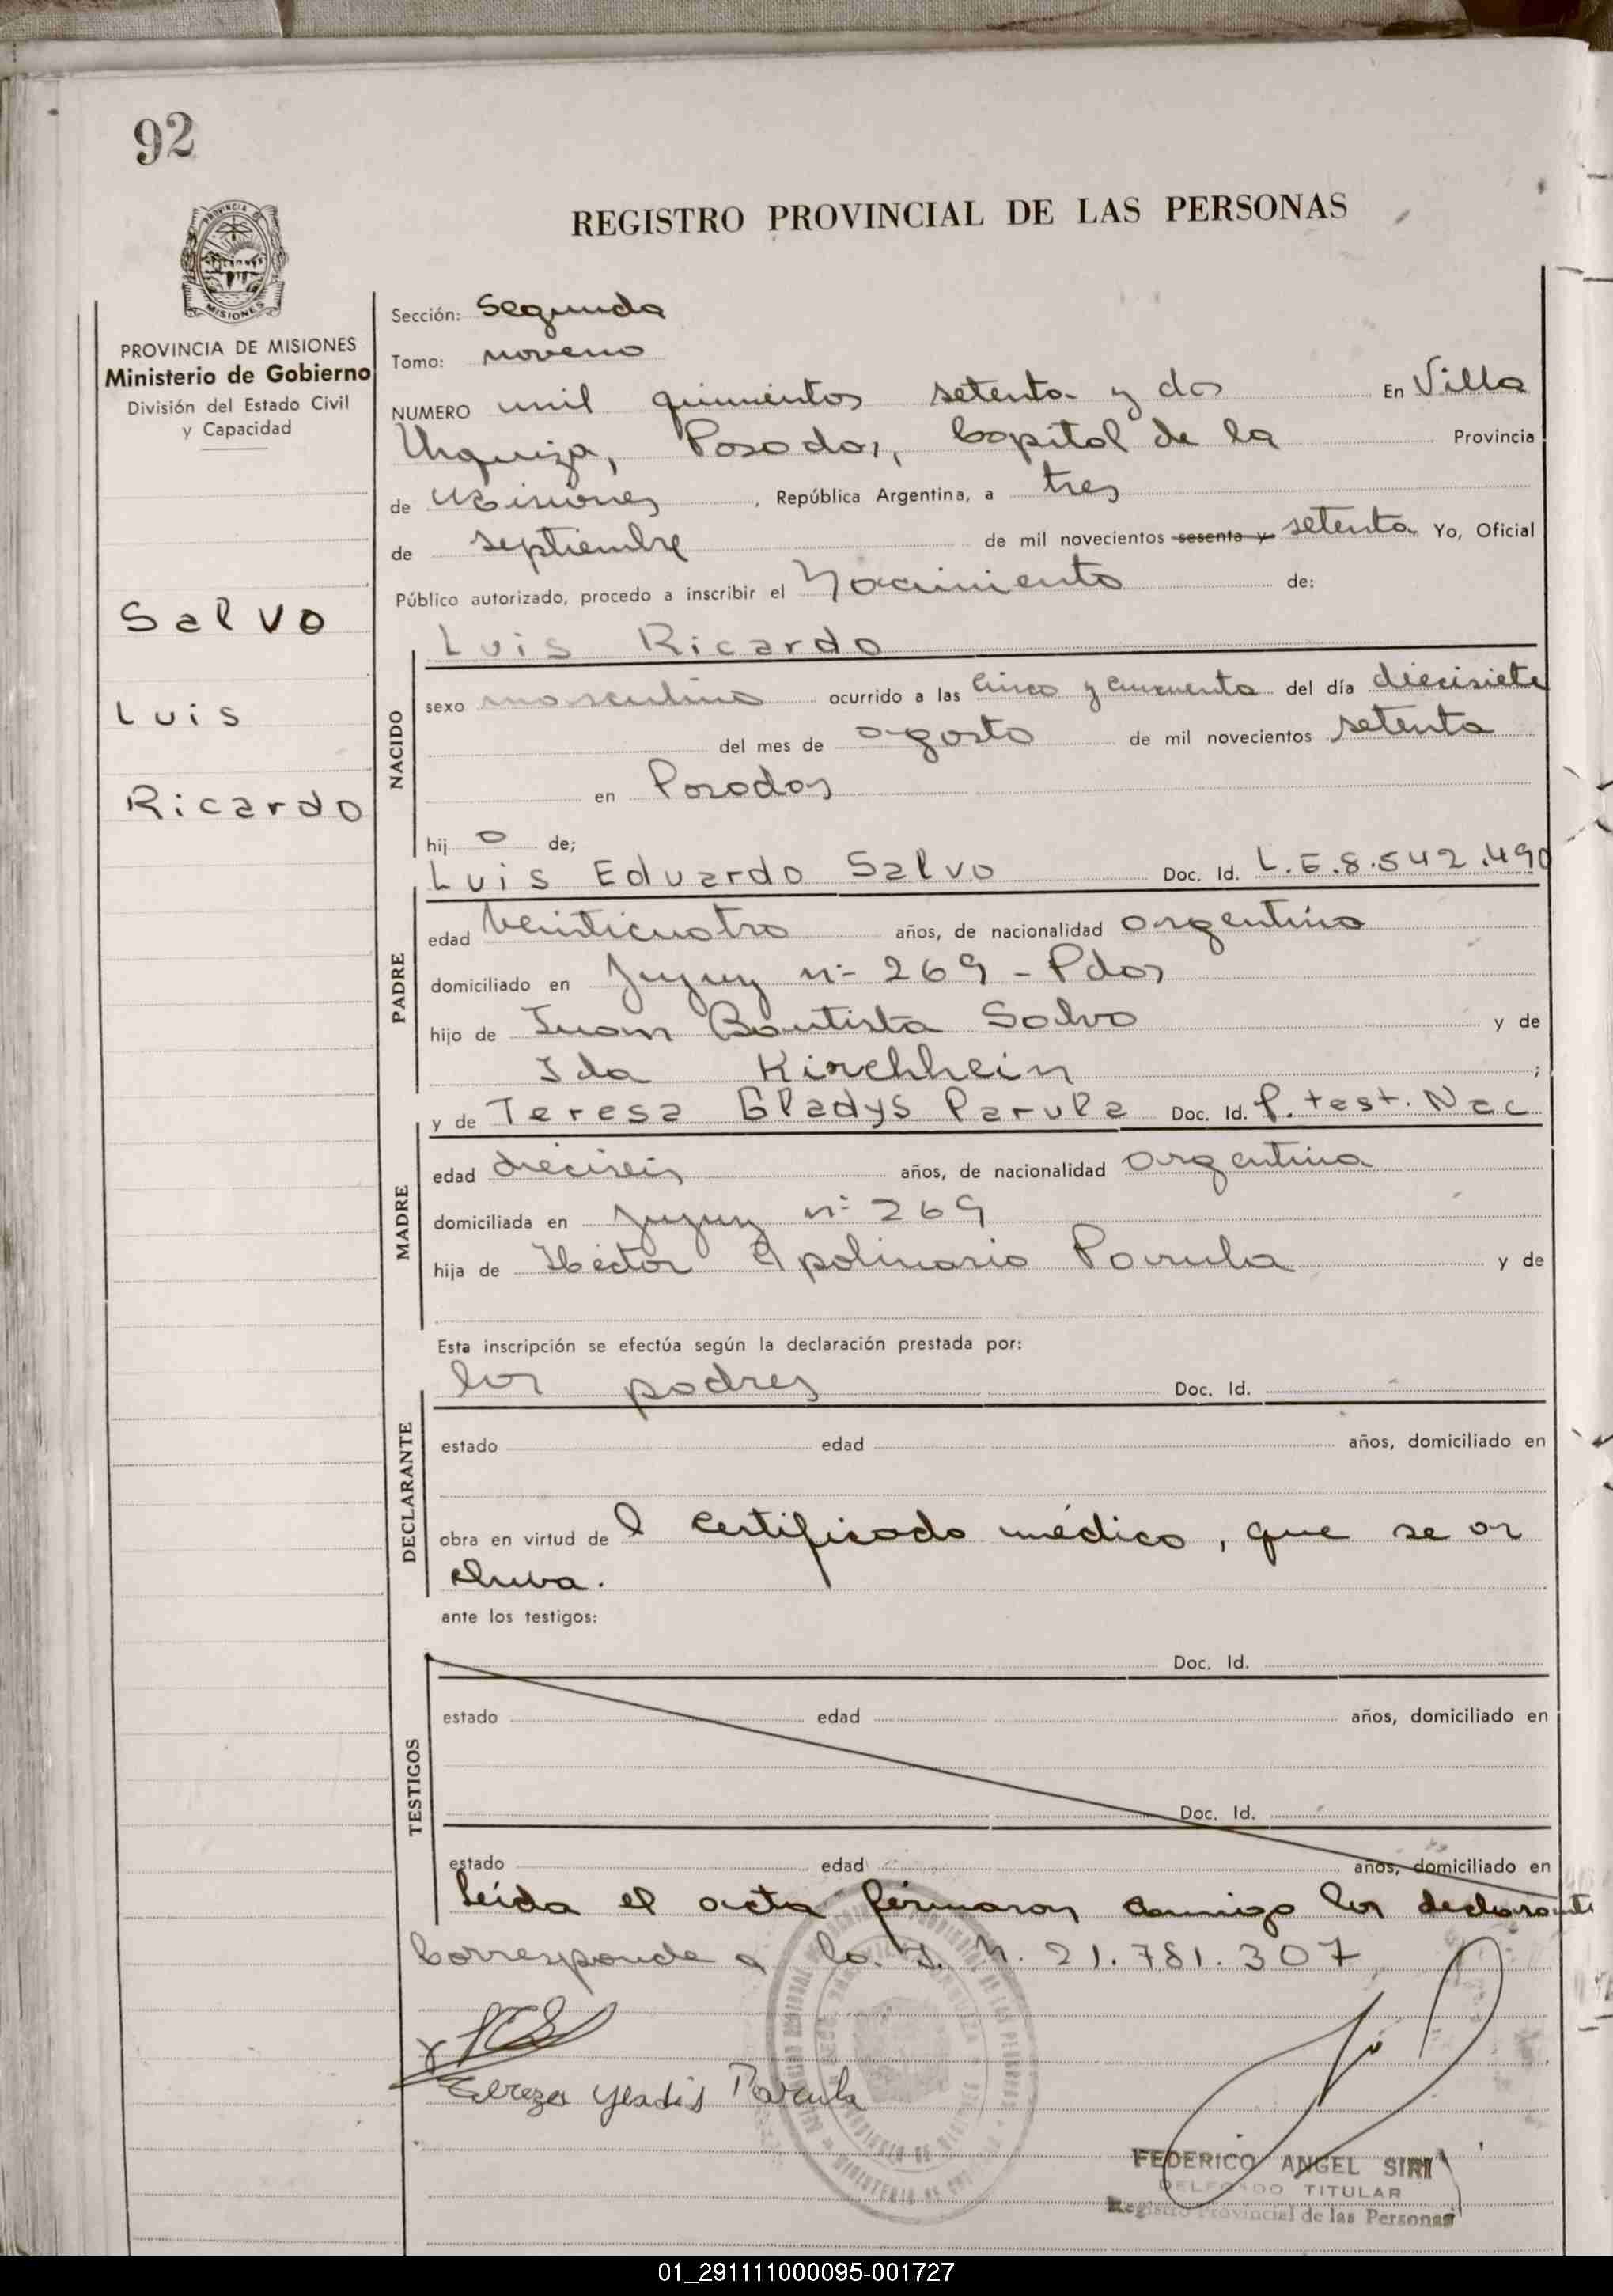 92
REGISTRO PROVINCIAL DE LAS PERSONAS
PROVINCIA DE
MISIONES
PROVINCIA DE MISIONES
Ministerio de Gobierno
División del Estado Civil
y Capacidad
Salvo
Luis
Ricardo
Sección: Segunda
Tomo: noveno
NUMERO mil quinientos setenta y dos En Villa
Urquiza, Posadas, Capital de la Provincia
de Misiones, República Argentina, a tres
de septiembre de mil novecientos sesenta y setenta Yo, Oficial
Público autorizado, procedo a inscribir el Nacimiento de:
NACIDO
Luis Ricardo
sexo masculino ocurrido a las cinco y cincuenta del día diecisiete
del mes de agosto de mil novecientos setenta
en Posadas
hij o de;
PADRE
Luis Eduardo Salvo Doc. Id. L.E.8.542.490
edad veinticuatro años, de nacionalidad argentino
domiciliado en Jujuy nº 269 - Pdas
hijo de Juan Bautista Salvo y de
Ida Kirchhein ;
MADRE
y de Teresa Gladys Parula Doc. Id. P. test. Nac
edad dieciseis años, de nacionalidad argentina
domiciliada en Jujuy nº 269
hija de Héctor Apolinario Parula y de
Esta inscripción se efectúa según la declaración prestada por:
DECLARANTE
los padres Doc. Id.
estado edad años, domiciliado en
obra en virtud de l certificado médico, que se ar
chiva.
ante los testigos:
TESTIGOS
Doc. Id.
estado edad años, domiciliado en
Doc. Id.
estado edad años, domiciliado en
Leída el acta firmaron conmigo los declarante
Corresponde a la. I. N. 21.781.307
Tereza Gladis Parula
FEDERICO ANGEL SIRI
DELEGADO TITULAR
Registro Provincial de las Personas
01_291111000095-001727